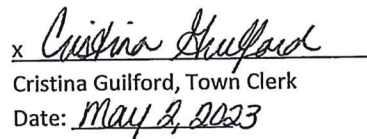 x Cristina Guilford
Cristina Guilford, Town Clerk
Date: May 2, 2023